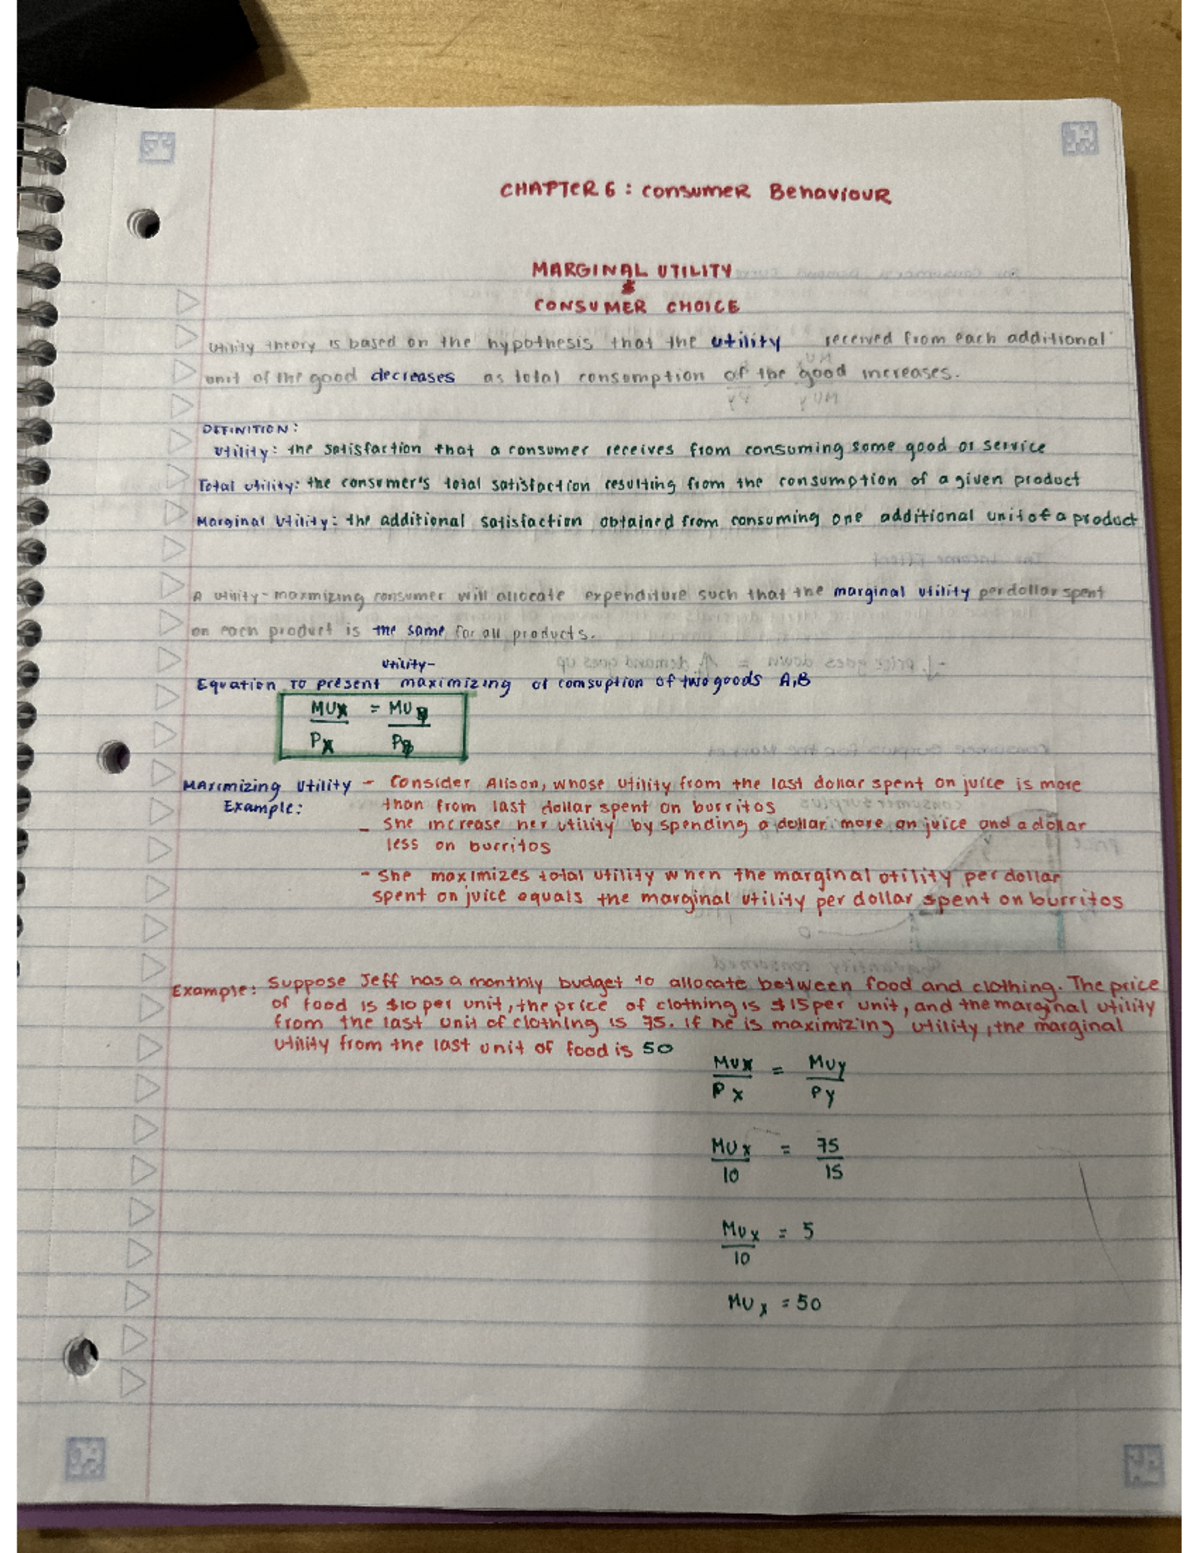 CHAPTER 6 : Consumer Behaviour
MARGINAL UTILITY
&
CONSUMER CHOICE
Utility theory is based on the hypothesis that the utility received from each additional
unit of the good decreases as total consumption of the good increases.
DEFINITION:
Utility: the satisfaction that a consumer receives from consuming some good or service
Total utility: the consumer's total satisfaction resulting from the consumption of a given product
Marginal Utility: the additional satisfaction obtained from consuming one additional unit of a product
A utility-maxmizing consumer will allocate expenditure such that the marginal utility per dollar spent
on each product is the same for all products.
utility-
Equation to present maximizing of comsuption of two goods A,B
MUx = MUy
Px Py
Maximizing Utility - Consider Alison, whose utility from the last dollar spent on juice is more
Example: than from last dollar spent on burritos
- She increase her utility by spending a dollar more on juice and a dollar
less on burritos
- She maximizes total utility when the marginal utility per dollar
spent on juice equals the marginal utility per dollar spent on burritos
Example: Suppose Jeff has a monthly budget to allocate between food and clothing. The price
of food is $10 per unit, the price of clothing is $15 per unit, and the marginal utility
from the last unit of clothing is 75. If he is maximizing utility, the marginal
utility from the last unit of food is 50
MUx = MUy
Px Py
MUx = 75
10 15
MUx = 5
10
MUx = 50